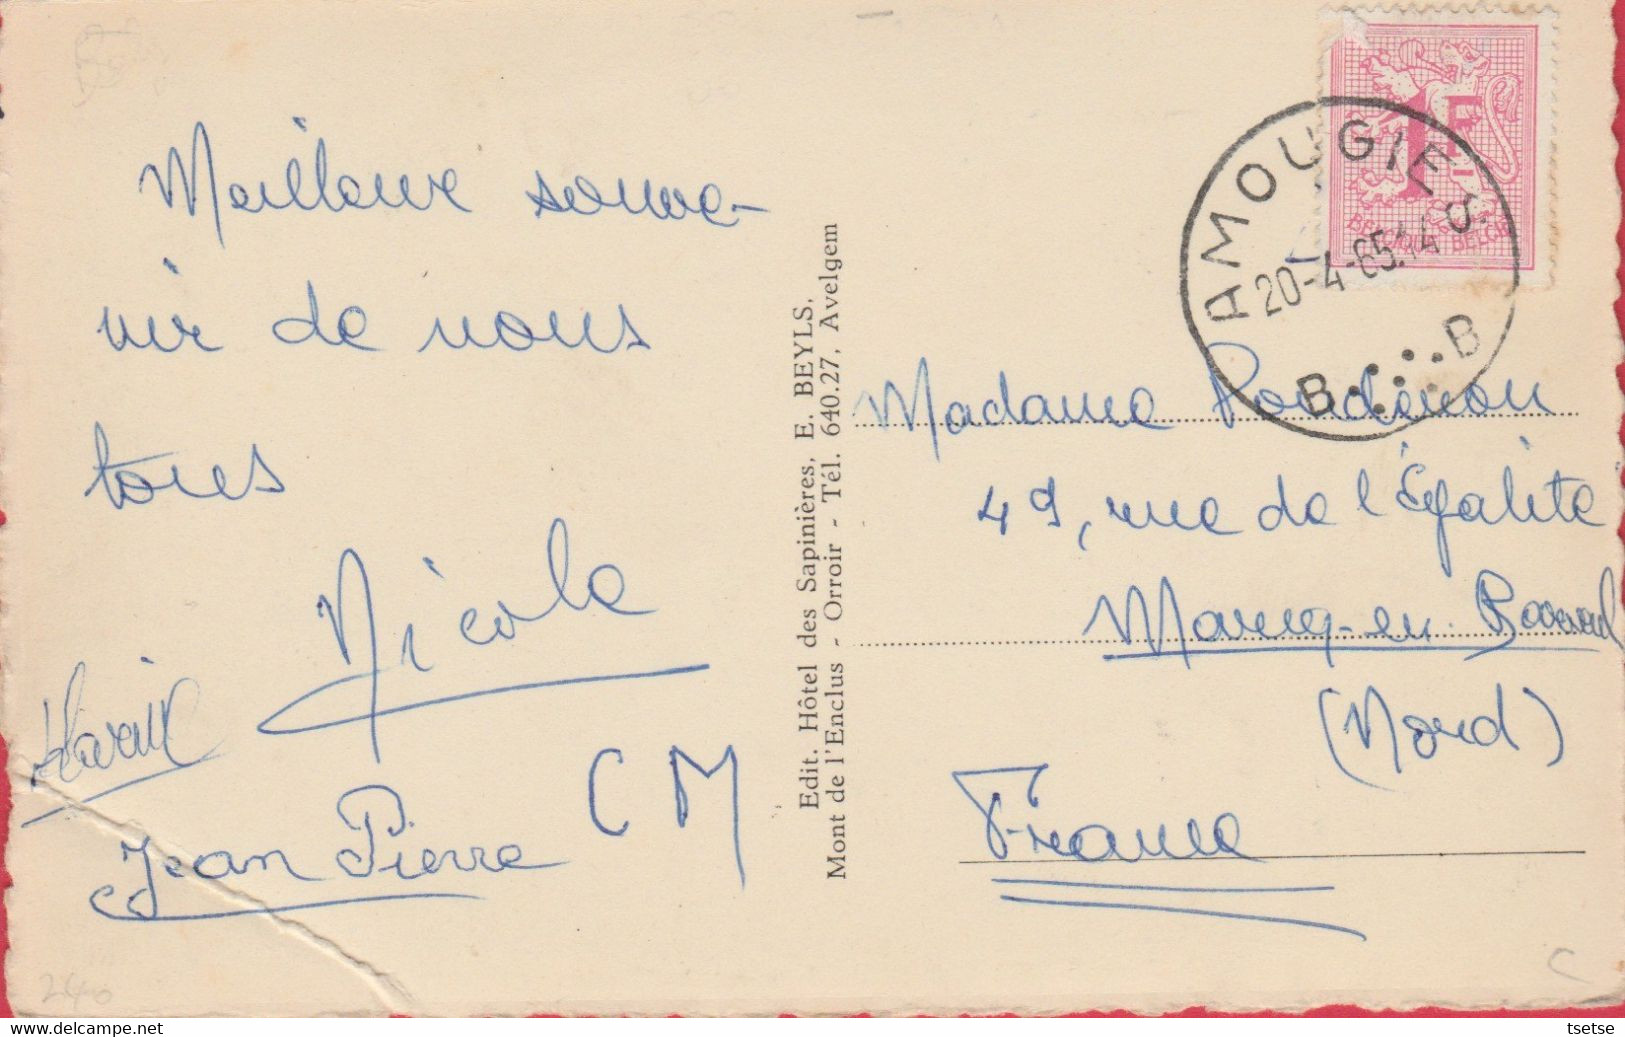 Meilleure souve-
nir de nous
tous
Nicole
Jean Pierre
C M
240
Edit. Hôtel des Sapinières, E. BEYLS,
Mont de l'Enclus - Orroir - Tél. 640.27, Avelgem
1F
BELGIQUE BELGIE
AMOUGIES
20-4-65.14
B B
Madame
49, rue de l'Égalité
Marcq-en-Baroeul
(Nord)
France
C
tsetse
www.delcampe.net